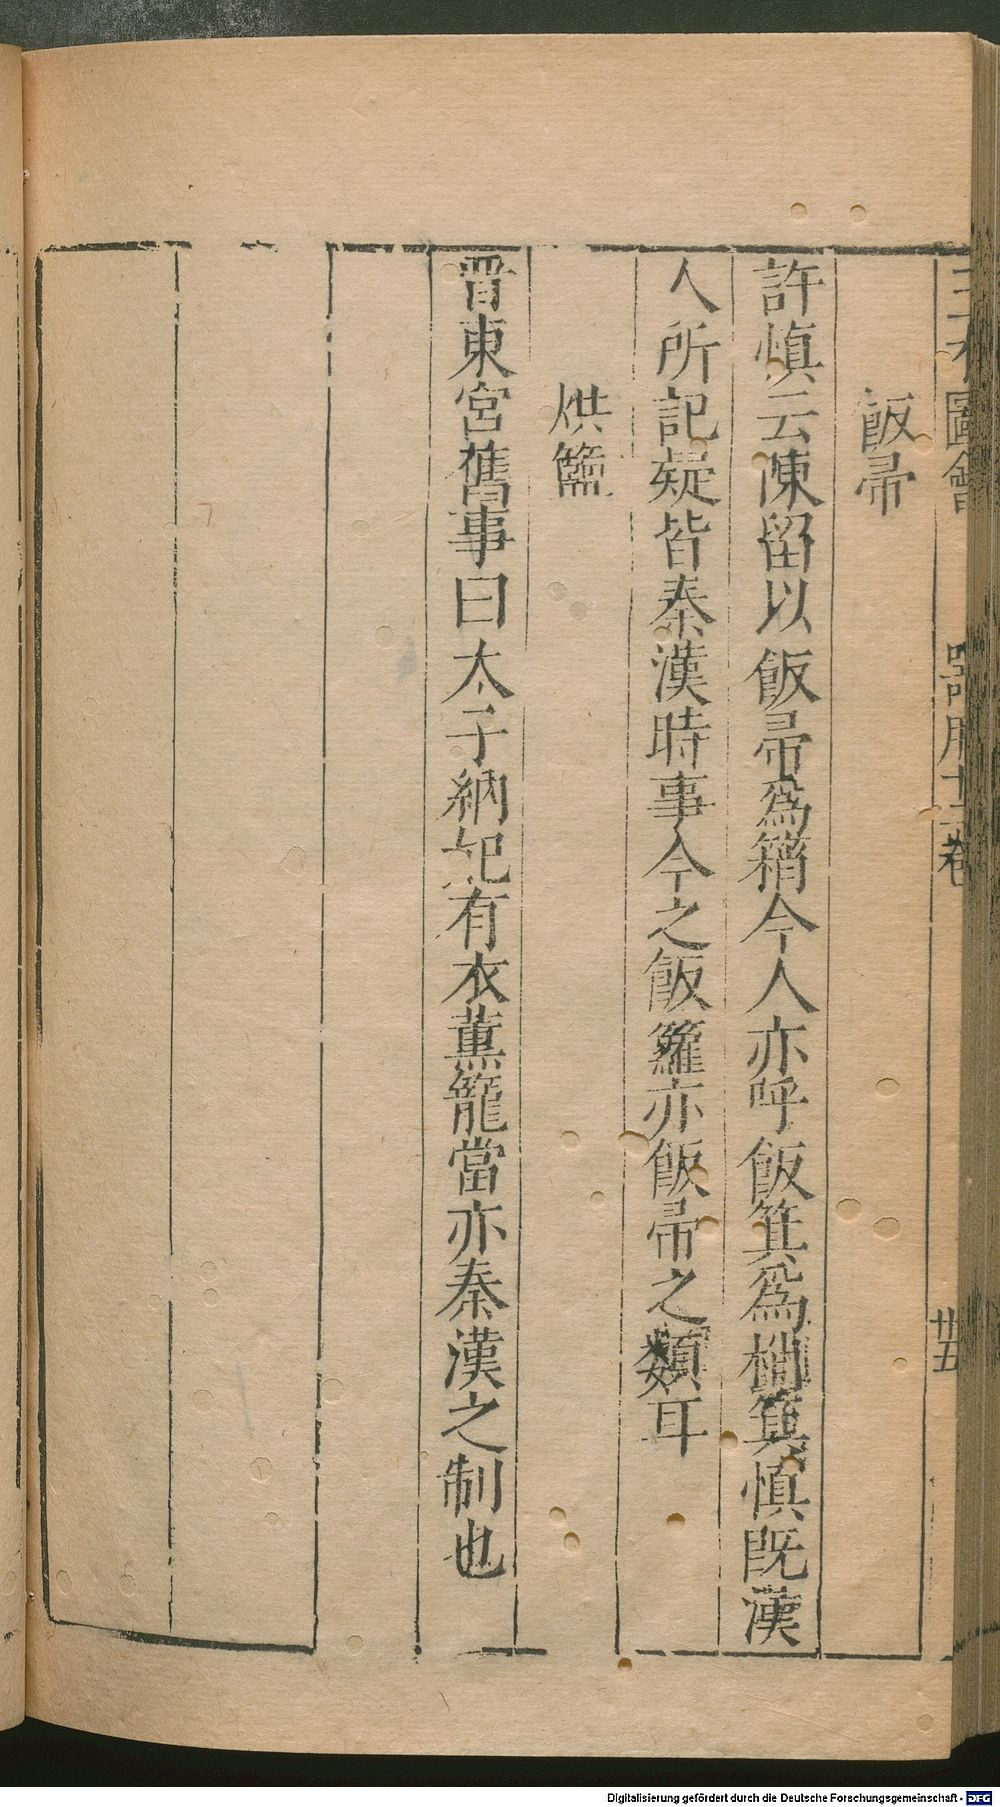 三才圖會 器用十二卷 廿五
飯帚
許慎云陳留以飯帚為䈰今人亦呼飯箕為梢箕慎既漢
人所記疑皆秦漢時事今之飯籮亦飯帚之類耳
烘籃
晋東宮舊事曰太子納妃有衣薰籠當亦秦漢之制也
Digitalisierung gefördert durch die Deutsche Forschungsgemeinschaft - DFG